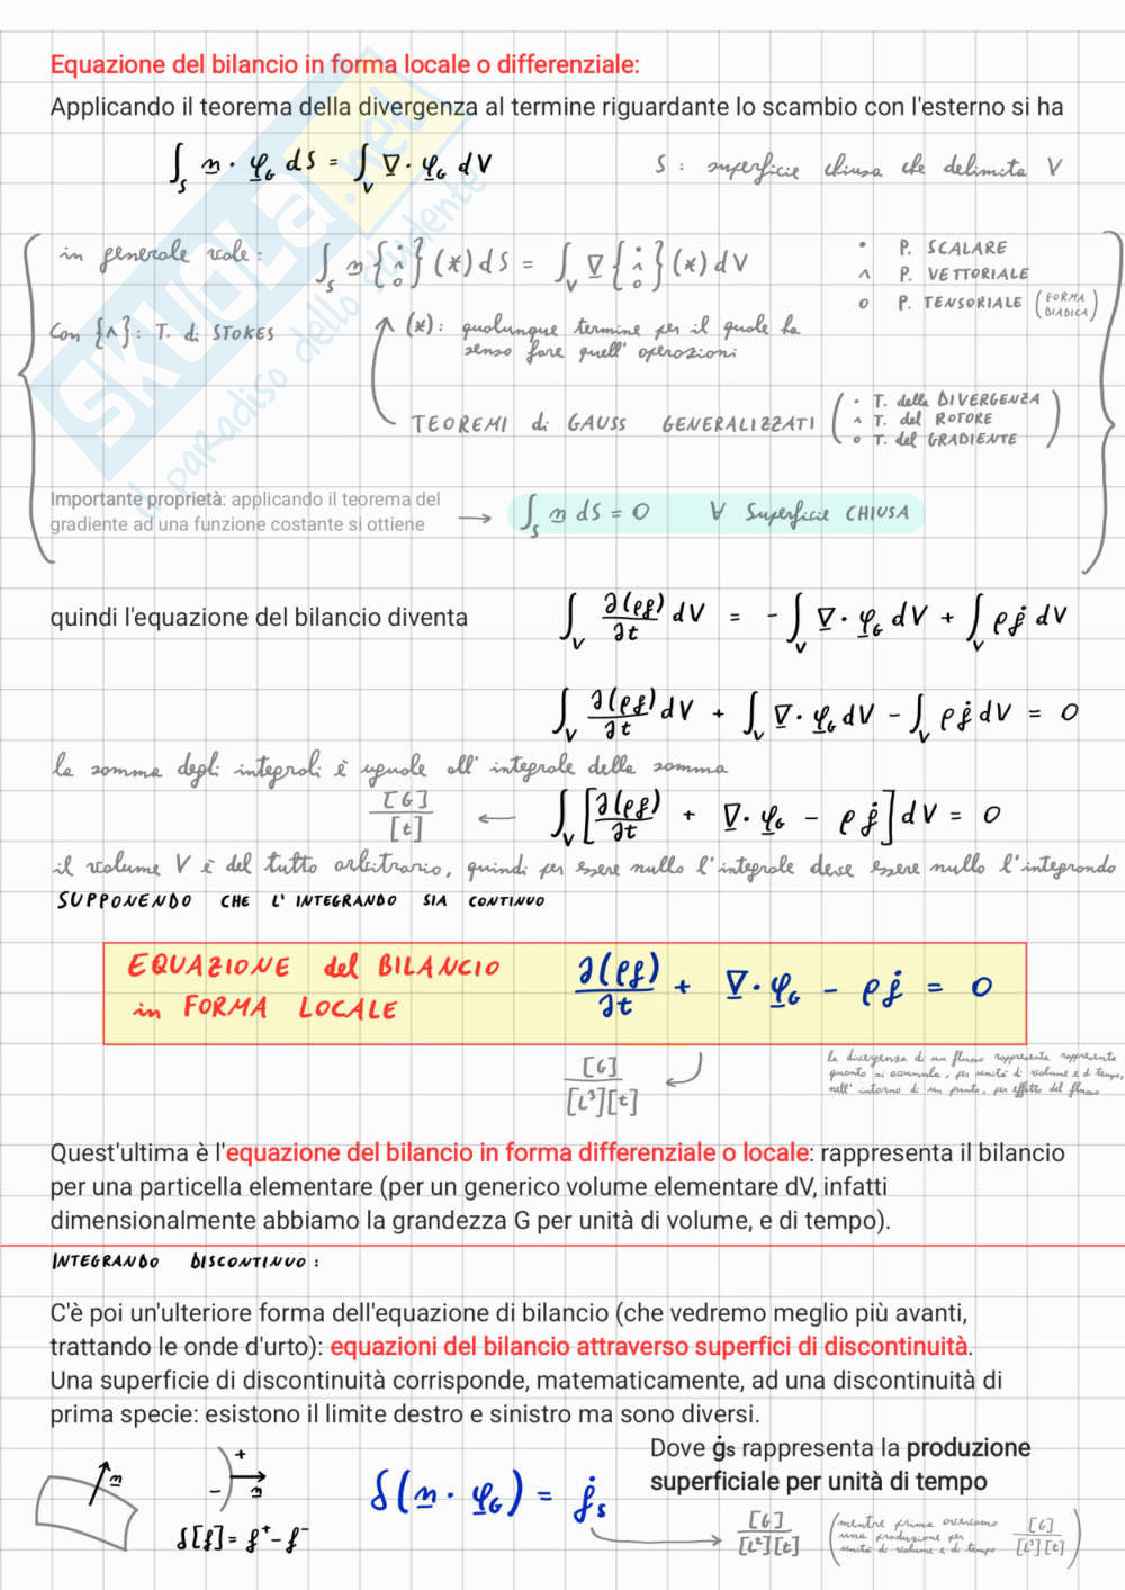 Equazione del bilancio in forma locale o differenziale:
Applicando il teorema della divergenza al termine riguardante lo scambio con l'esterno si ha
∫_S n · φ_G dS = ∫_V ∇ · φ_G dV
S : superficie chiusa che delimita V
in generale vale: ∫_S n { · ∧ o } (*) dS = ∫_V ∇ { · ∧ o } (*) dV
· P. SCALARE
∧ P. VETTORIALE
o P. TENSORIALE (FORMA DIADICA)
Con {∧}: T. di STOKES
(*): qualunque termine per il quale ha
senso fare quell' operazioni
TEOREMI di GAUSS GENERALIZZATI
· T. della DIVERGENZA
∧ T. del ROTORE
o T. del GRADIENTE
Importante proprietà: applicando il teorema del
gradiente ad una funzione costante si ottiene
→ ∫_S n dS = 0 ∀ Superficie CHIUSA
quindi l'equazione del bilancio diventa
∫_V ∂(ρg)/∂t dV = - ∫_V ∇ · φ_G dV + ∫_V ρġ dV
∫_V ∂(ρg)/∂t dV + ∫_V ∇ · φ_G dV - ∫_V ρġ dV = 0
la somma degli integrali è uguale all' integrale della somma
[G]/[t] ← ∫_V [∂(ρg)/∂t + ∇ · φ_G - ρġ] dV = 0
il volume V è del tutto arbitrario, quindi per essere nullo l'integrale deve essere nullo l'integrando
SUPPONENDO CHE L' INTEGRANDO SIA CONTINUO
EQUAZIONE del BILANCIO
in FORMA LOCALE
∂(ρg)/∂t + ∇ · φ_G - ρġ = 0
[G]/[L³][t]
la divergenza di un flusso rappresenta rappresenta
quanto si accumula, per unità di volume e di tempo,
nell' intorno di un punto, per effetto del flusso
Quest'ultima è l'equazione del bilancio in forma differenziale o locale: rappresenta il bilancio
per una particella elementare (per un generico volume elementare dV, infatti
dimensionalmente abbiamo la grandezza G per unità di volume, e di tempo).
INTEGRANDO DISCONTINUO:
C'è poi un'ulteriore forma dell'equazione di bilancio (che vedremo meglio più avanti,
trattando le onde d'urto): equazioni del bilancio attraverso superfici di discontinuità.
Una superficie di discontinuità corrisponde, matematicamente, ad una discontinuità di
prima specie: esistono il limite destro e sinistro ma sono diversi.
Dove ġs rappresenta la produzione
superficiale per unità di tempo
n
+
- n
δ(n · φ_G) = ġ_s
δ[g] = g⁺ - g⁻
[G]/[L²][t]
(mentre prima avevamo
una produzione per
unità di volume e di tempo [G]/[L³][t])
SKUOLA.net
il paradiso dello studente